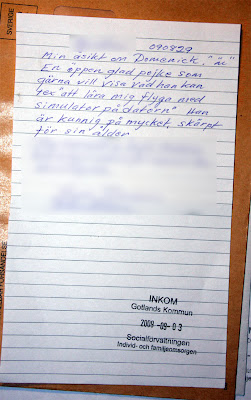 SVERIGE
090829
Min åsikt om Domenick, "är"
En öppen glad pojke som
gärna vill visa vad han kan
tex "att lära mig flyga med
simulator på datorn" Han
är kunnig på mycket, skärpt
för sin ålder
INKOM
Gotlands Kommun
2009 -09- 03
Socialförvaltningen
Individ- och familjeomsorgen